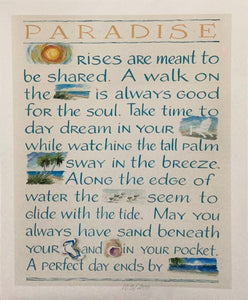 PARADISE
RISES ARE MEANT TO
BE SHARED. A WALK ON
THE IS ALWAYS GOOD
FOR THE SOUL. TAKE TIME TO
DAY DREAM IN YOUR
WHILE WATCHING THE TALL PALM
SWAY IN THE BREEZE.
ALONG THE EDGE OF
WATER THE SEEM TO
GLIDE WITH THE TIDE. MAY YOU
ALWAYS HAVE SAND BENEATH
YOUR AND IN YOUR POCKET.
A PERFECT DAY ENDS BY